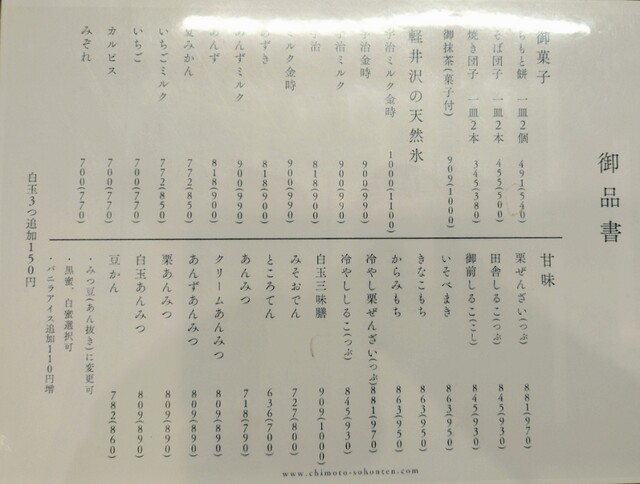 御品書
御菓子
ちもと餅 一皿2個 491(540)
そば団子 一皿2本 455(500)
焼き団子 一皿2本 345(380)
御抹茶(菓子付) 909(1000)
軽井沢の天然氷
宇治ミルク金時 1000(1100)
宇治金時 900(990)
宇治ミルク 900(990)
宇治 818(900)
ミルク金時 900(990)
あずき 818(900)
あんずミルク 900(990)
あんず 818(900)
夏みかん 772(850)
いちごミルク 772(850)
いちご 700(770)
カルピス 700(770)
みぞれ 700(770)
白玉3つ追加150円
甘味
栗ぜんざい(つぶ) 881(970)
田舎しるこ(つぶ) 845(930)
御前しるこ(こし) 845(930)
いそべまき 863(950)
きなこもち 863(950)
からみもち 863(950)
冷やし栗ぜんざい(つぶ) 881(970)
冷やししるこ(つぶ) 845(930)
白玉三味膳 909(1000)
みそおでん 727(800)
ところてん 636(700)
あんみつ 718(790)
クリームあんみつ 809(890)
あんずあんみつ 809(890)
栗あんみつ 809(890)
白玉あんみつ 809(890)
豆かん 782(860)
・みつ豆(あん抜き)に変更可
・黒蜜、白蜜選択可
・バニラアイス追加110円増
www.chimoto-sohonten.com